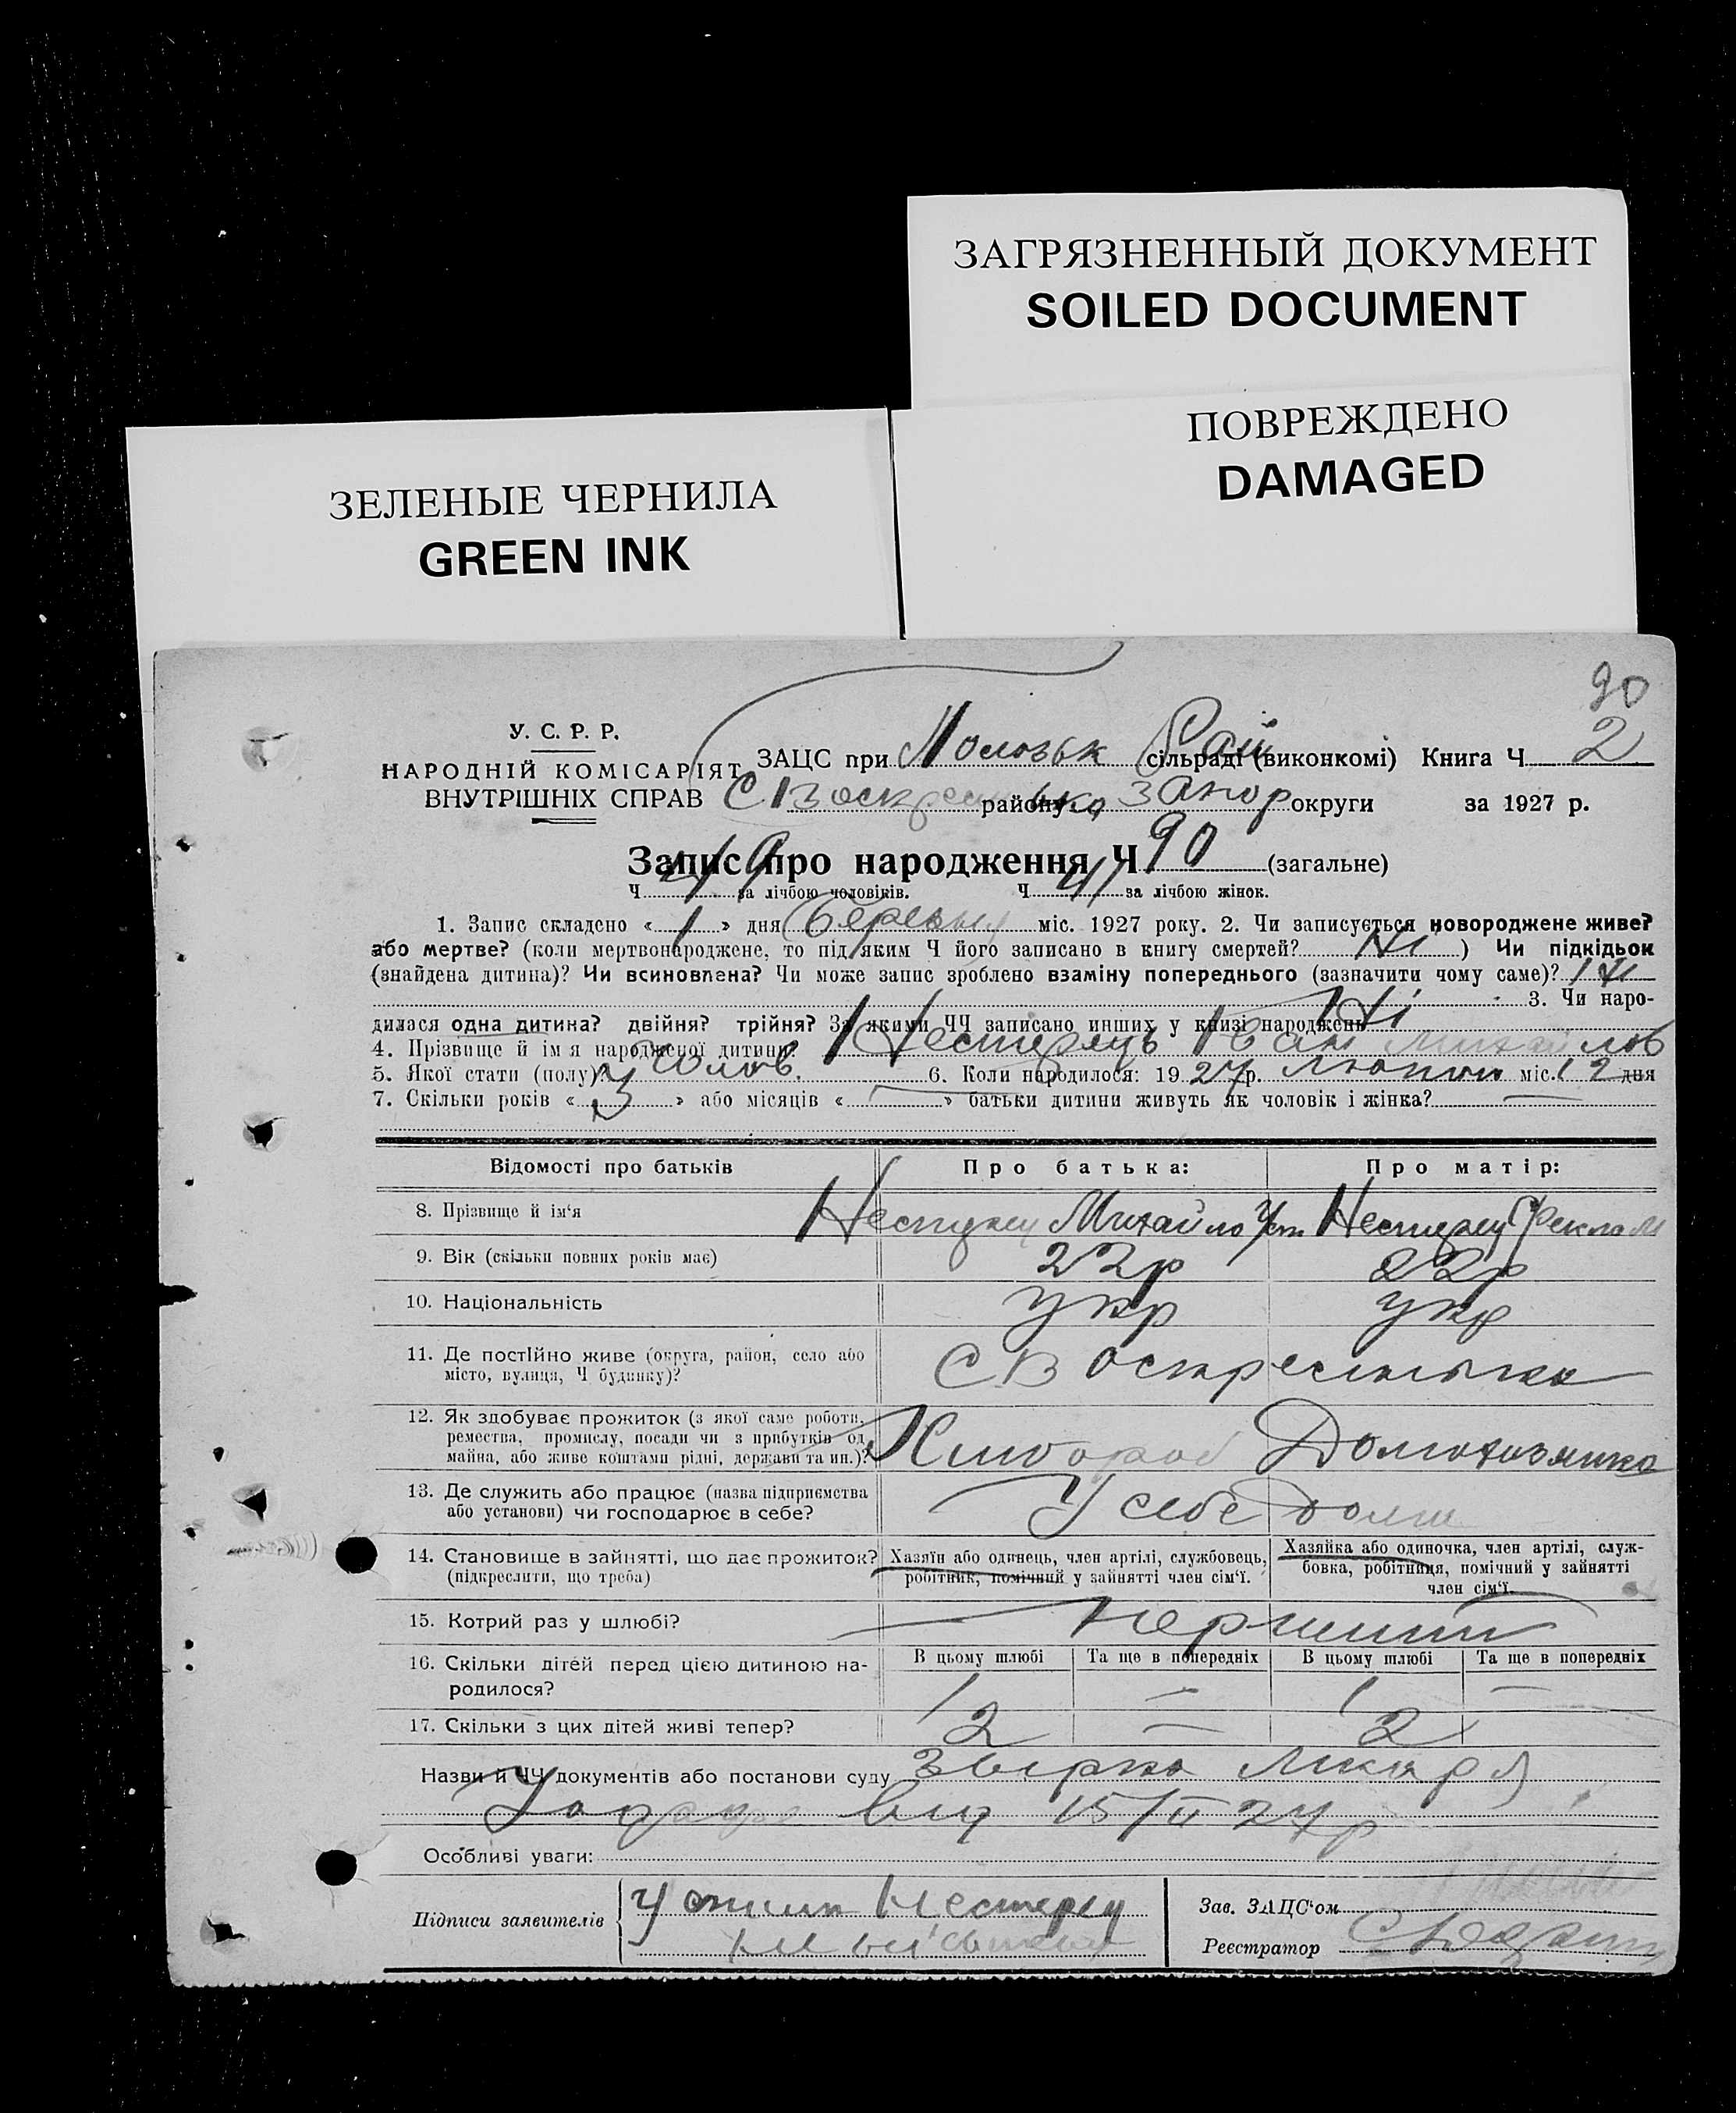 ЗАГРЯЗНЕННЫЙ ДОКУМЕНТ
SOILED DOCUMENT
ПОВРЕЖДЕНО
DAMAGED
ЗЕЛЕНЫЕ ЧЕРНИЛА
GREEN INK
90
У. С. Р. Р.
НАРОДНІЙ КОМІСАРІЯТ
ВНУТРІШНІХ СПРАВ
ЗАЦС при сільраді (виконкомі) Книга Ч 2
району Запор округи за 1927 р.
Запис про народження Ч 90 (загальне)
Ч 49 за лічбою чоловіків. Ч 41 за лічбою жінок.
1. Запис складено « 1 » дня березня міс. 1927 року. 2. Чи записується новороджене живе?
або мертве? (коли мертвонароджене, то під яким Ч його записано в книгу смертей? Ні ) Чи підкідьок
(знайдена дитина)? Чи всиновлена? Чи може запис зроблено взаміну попереднього (зазначити чому саме)? Ні
3. Чи наро-
дилася одна дитина? двійня? трійня? За якими ЧЧ записано инших у книзі народжень Ні
4. Прізвище й імя народженої дитини? Нестерець Іван Михайлов
5. Якої стати (полу)? Чолов. 6. Коли народилося: 1927 р. міс. 12 дня
7. Скільки років « 3 » або місяців « — » батьки дитини живуть як чоловік і жінка? —
Відомості про батьків
Про батька:
Про матір:
8. Прізвище й ім'я Нестерец Михайло Уст Нестерец Фекла М
9. Вік (скільки повних років має) 22р 22р
10. Національність укр укр
11. Де постійно живе (округа, район, село або
місто, вулиця, Ч будинку)?
С Воскресенка
12. Як здобуває прожиток (з якої саме роботи,
ремества, промислу, посади чи з прибутків од
майна, або живе коштами рідні, держави та ин.)?
Хлібороб Домохозяйка
13. Де служить або працює (назва підприємства
або установи) чи господарює в себе?
У себе дома
14. Становище в зайнятті, що дає прожиток?
(підкреслити, що треба)
Хазяїн або одинець, член артілі, службовець,
робітник, помічний у зайнятті член сім'ї.
Хазяйка або одиночка, член артілі, служ-
бовка, робітниця, помічний у зайнятті
член сім'ї.
15. Котрий раз у шлюбі? перший
16. Скільки дітей перед цією дитиною на-
родилося?
В цьому шлюбі Та ще в попередніх В цьому шлюбі Та ще в попередніх
1 — 1 —
17. Скільки з цих дітей живі тепер? 2 — 2
Назви й ЧЧ документів або постанови суду
від 15/II 27р
Особливі уваги:
Підписи заявителів
Устин Нестерец
Зав. ЗАЦС'ом
Реєстратор